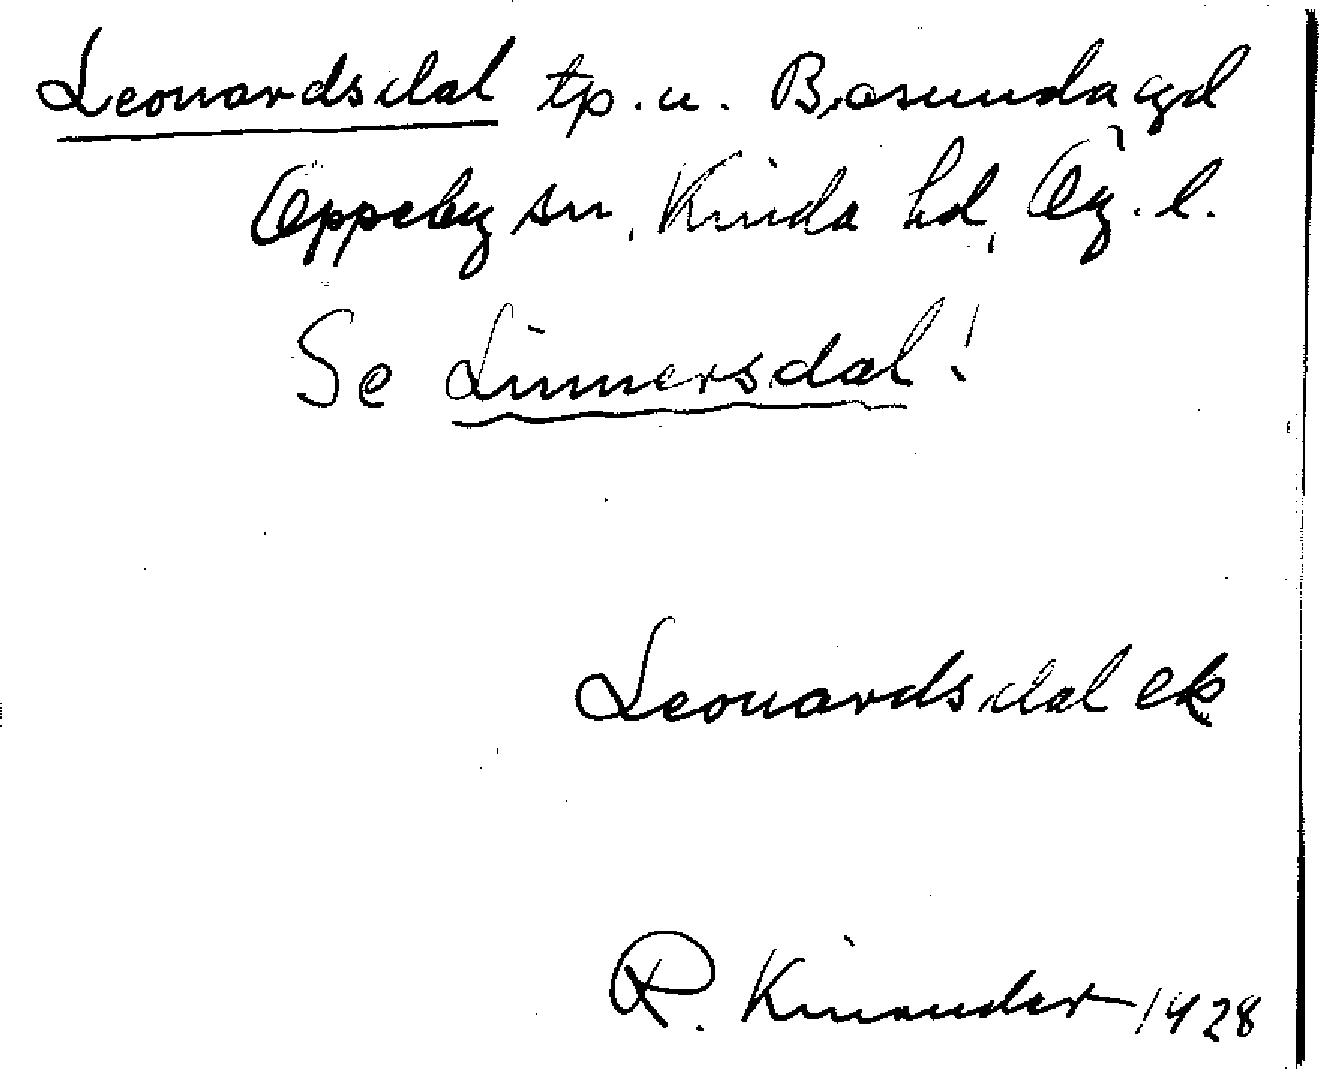 Leonardsdal tp. u. Basunda gd
Oppeby sn, Kinda hd, Ög. l.
Se Linnersdal!
Leonardsdal ek
R. Kinander 1928